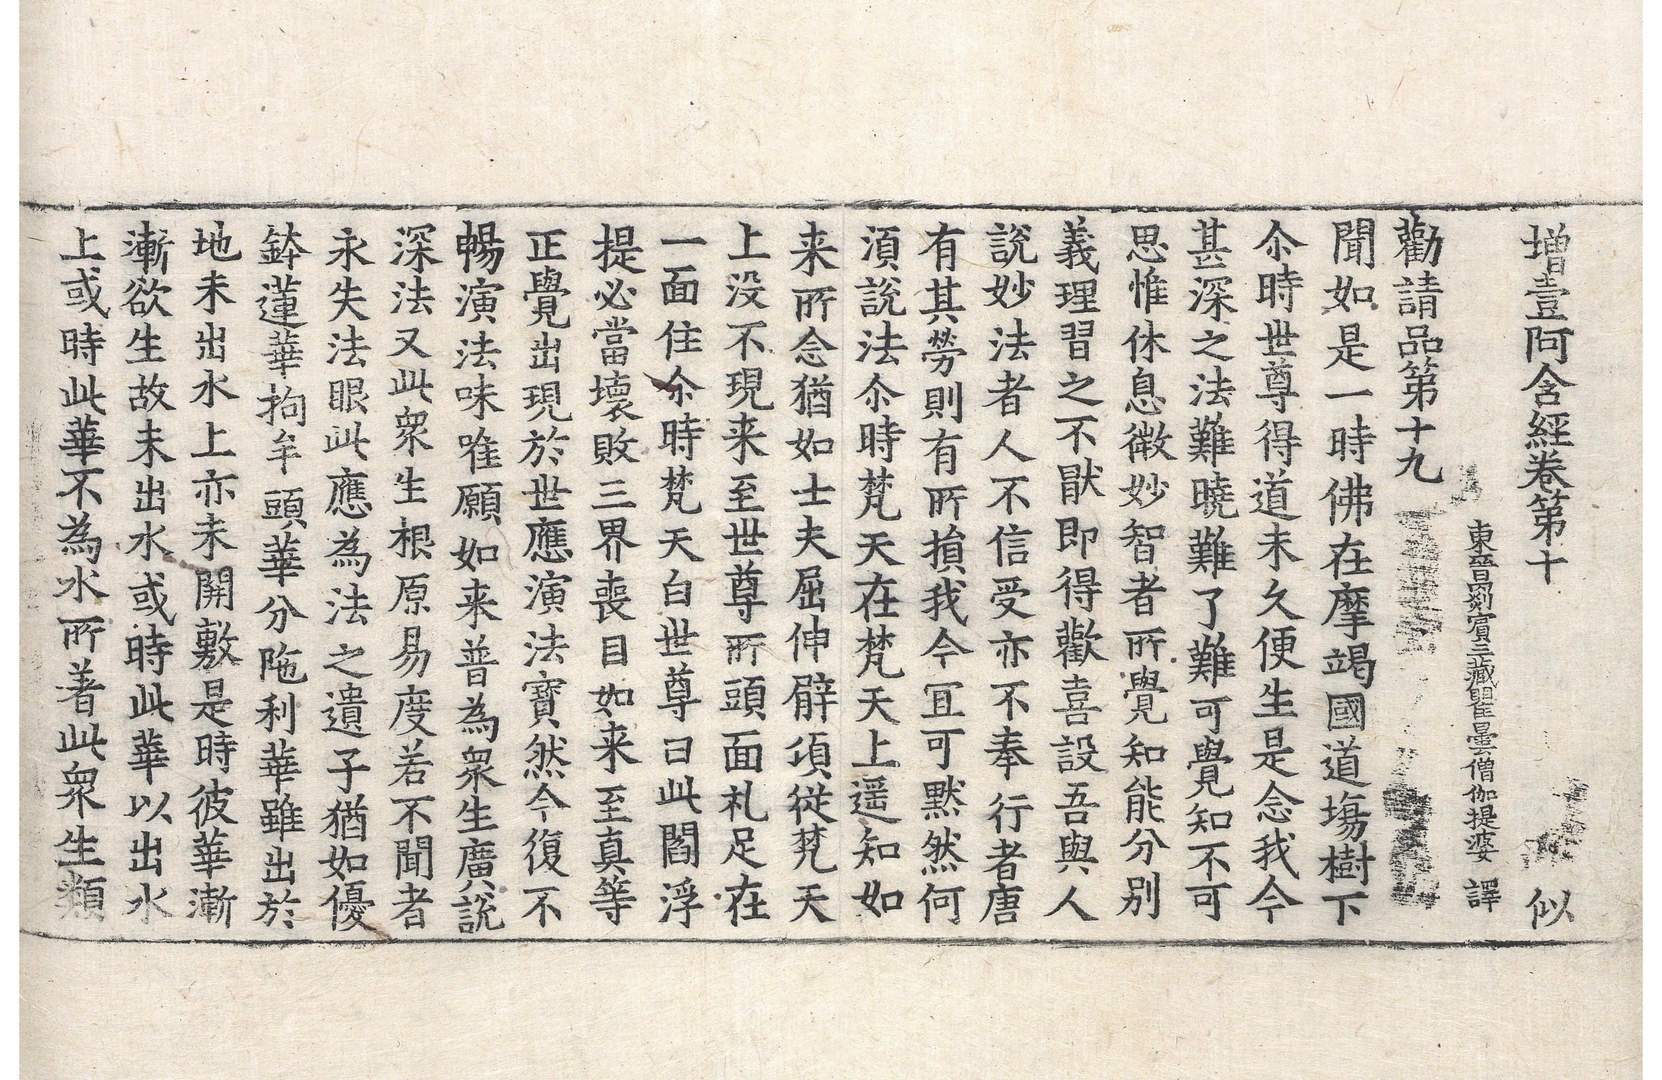 增壹阿含經卷第十　似
東晉罽賓三藏瞿曇僧伽提婆　譯
勸請品第十九
聞如是一時佛在摩竭國道塲樹下
尒時世尊得道未久便生是念我今
甚深之法難曉難了難可覺知不可
思惟休息微妙智者所覺知能分别
義理習之不猒即得歡喜設吾與人
說妙法者人不信受亦不奉行者唐
有其勞則有所損我今冝可默然何
湏說法尒時梵天在梵天上遥知如
来所念猶如士夫屈伸臂項從梵天
上没不現来至世尊所頭面札足在
一面住尒時梵天白世尊曰此閻浮
提必當壞敗三界喪目如来至真等
正覺出現於世應演法寶然今復不
暢演法味唯願如来普為衆生廣說
深法又此衆生根原易度若不聞者
永失法眼此應為法之遺子猶如優
鉢蓮華拘牟頭華分陁利華雖出於
地未出水上亦未開敷是時彼華漸
漸欲生故未出水或時此華以出水
上或時此華不為水所著此衆生類